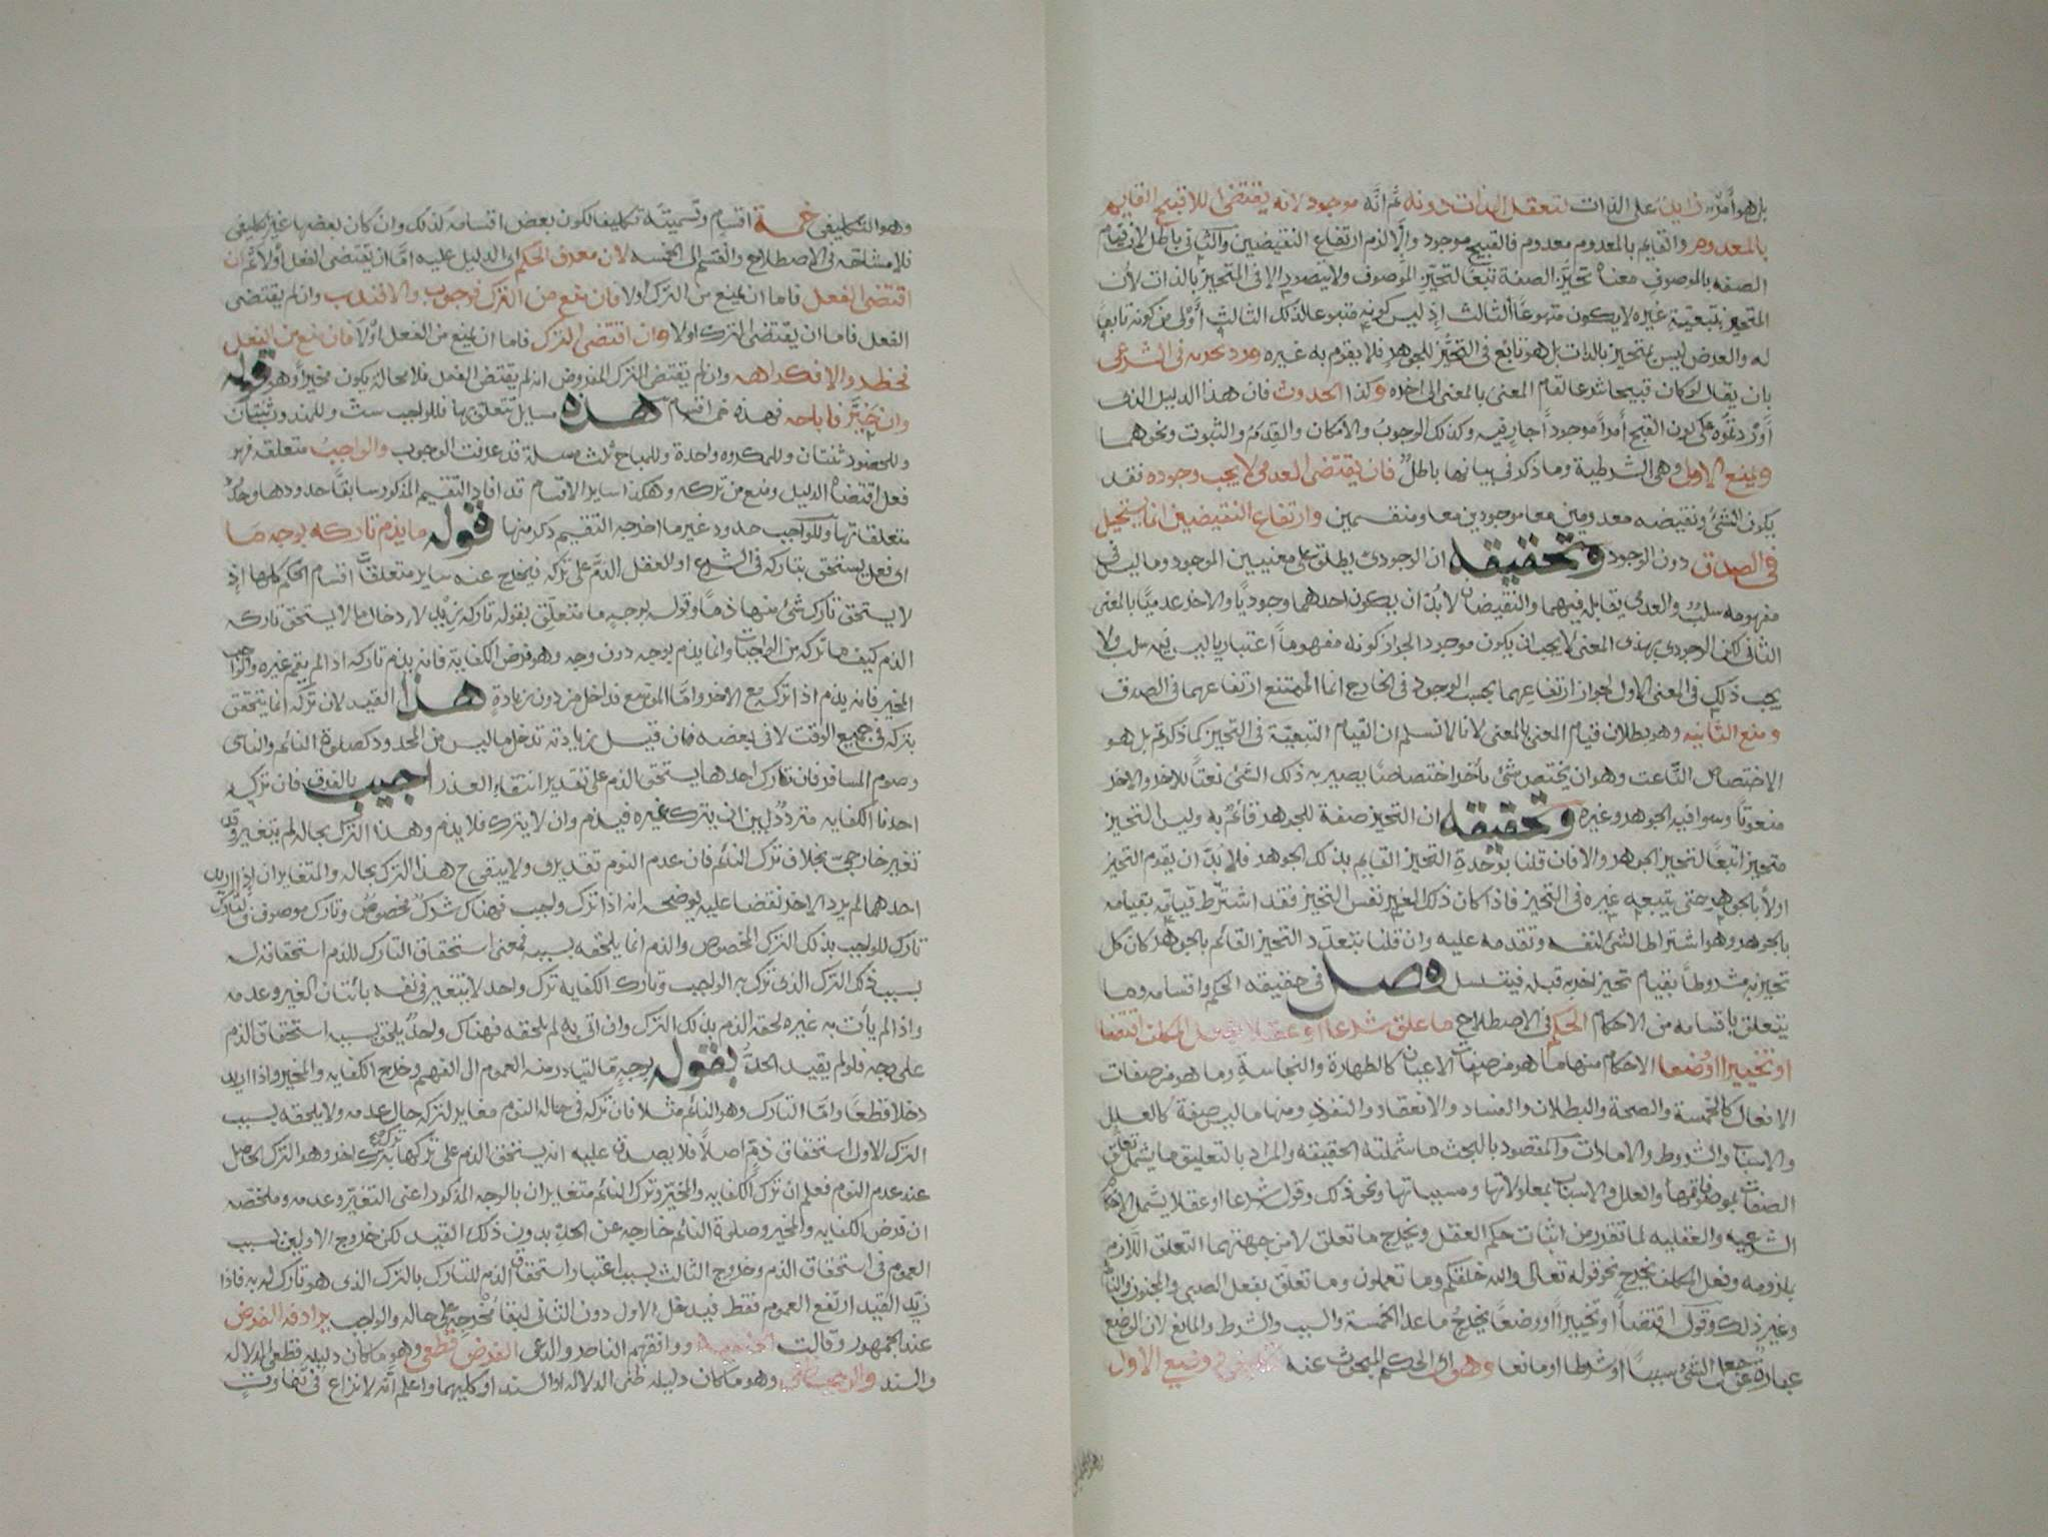 بل هو أمر زايد على الذات لتعقل الذات دونه ثم انه موجود لانه يقتضى اللاقبح القايم
بالمعدوم والقايم بالمعدوم معدوم فالقبيح موجود والا لزم ارتفاع النقيضين والثانى باطل لان قيام
الصفه بالموصوف معناه تحيز الصفة تبعا لتحيز الموصوف ولا يتصور الا فى المتحيز بالذات لان
المتحيز بتبعية غيره لا يكون متبوعا لثالث اذ ليس كونه متبوعا لذلك الثالث أولى من كونه تابعا
له والعرض ليس بمتحيز بالذات بل هو تابع فى التحيز للجوهر فلا يقوم به غيره ورد بجريه فى الشرعى
بان يقال لو كان قبيحا شرعا لقام المعنى بالمعنى الى اخره وكذا الحدوث فان هذا الدليل الذى
أوردتموه على كون القبح أمرا موجودا جار فيه وكذلك الوجوب والامكان والقدم والثبوت ونحوهما
ويمنع الاولى وهى الشرطية وما ذكر فى بيانها باطل فان يقتضى العدمى لا يجب وجوده فقد
يكون الشئ ونقيضه معدومين معا وموجودين معا ومنقسمين وارتفاع النقيضين انما يستحيل
فى الصدق دون الوجود وتحقيقه ان الوجودى يطلق على معنيين الموجود وما ليس فى
مفهومه سلب والعدمى يقابله فيهما والنقيضان لا بد ان يكون احدهما وجوديا والاخر عدميا بالمعنى
الثانى لكن الوجودى بهذى المعنى لا يجب ان يكون موجودا لجواز كونه مفهوما اعتباريا ليس فيه سلب ولا
يجب ذلك فى المعنى الاول لجواز ارتفاعهما بحسب الوجود فى الخارج انما الممتنع ارتفاعهما فى الصدق
ومنع الثانيه وهو بطلان قيام المعنى بالمعنى لانا لا نسلم ان القيام التبعية فى التحيز كما ذكرتم بل هو
الاختصاص الناعت وهو ان يختص شئ بأخر اختصاصا يصير به ذلك الشئ نعتا للاخر والاخر
منعوتا وسوا فيه الجوهر وغيره وتحقيقه ان التحيز صفة للجوهر قائم به وليس التحيز
متحيزا تبعا لتحيز الجوهر والا فان قلنا بوحدة التحيز القايم بذلك الجوهر فلا بد ان يقوم التحيز
اولا بالجوهر حتى يتبعه غيره فى التحيز فاذا كان ذلك الغير نفس التحيز فقد اشترط قيامه بقيامه
بالجوهر وهو اشتراط الشئ لنفسه وتقدمه عليه وان قلنا بتعدد التحيز القائم بالجوهر كان كل
تحيز به مشروطا بقيام تحيز اخر به قبله فيتسلسل فصل فى حقيقه الحكم واقسامه وما
يتعلق باقسامه من الاحكام الحكم فى الاصطلاح ما علق شرعا او عقلا بفعل المكلف اقتضا
او تخييرا او وضعا الاحكام منها ما هو من صفات الاعيان كالطهارة والنجاسة وما هو من صفات
الافعال كالخمسة والصحة والبطلان والفساد والانعقاد والنفوذ ومنها ما ليس صفة كالعلل
والاسباب والشروط والامارات والمقصود بالبحث ما شملته الحقيقه والمراد بالتعليق ما يشمل تعلق
الصفات بموصوفاتها والعلل والاسباب بمعلولاتها ومسبباتها ونحو ذلك وقوله شرعا او عقلا يشمل الاحكام
الشرعيه والعقليه لما تقرر من اثبات حكم العقل ويخرج ما تعلق لا من جهتهما التعلق اللازم
بلزومه وفعل المكلف يخرج نحو قوله تعالى والله خلقكم وما تعملون وما تعلق بفعل الصبى والمجنون والنائم
وغير ذلك وقوله اقتضاأ او تخييرا او وضعا يخرج ما عدا الخمسة والسبب والشرط والمانع لان الوضع
عبارة عن جعل الشئ سببا او شرطا او مانعا وهو اى الحكم المبحوث عنه تكليفى ووضعى الاول
وهو التكليفى خمسة اقسام وتسميته تكليفا لكون بعض اقسامه كذلك وان كان بعضها غير تكليفى
فلا مشاحه فى الاصطلاح وانقسم الى الخمسه لان معرف الحكم اى الدليل عليه اما ان يقتضى الفعل أولا ثم ان
اقتضى الفعل فاما ان يمنع من الترك أولا فان منع من الترك فوجوب والا فندب وان لم يقتضى
الفعل فاما ان يقتضى الترك اولا وان اقتضى الترك فاما ان يمنع من الفعل اولا فان منع من الفعل
فحظر والا فكراهه وان لم يقتض الترك المفروض انه لم يقتض الفعل فلا محالة يكون مخيرا وهو قوله
وان خير فاباحه فهذه خمسة اقسام هذه مسايل تتعلق بها فللواجب ست وللمندوب ثنتان
وللمحضور ثنتان وللمكروه واحدة وللمباح ثلث مسلة قد عرفت الوجوب والواجب متعلقه فهو
فعل اقتضاه الدليل ومنع من تركه وهكذا ساير الاقسام قد افاد التقسيم المذكور سابقا حدودها وحدود
متعلقاتها وللواجب حدود غير ما اخرجه التقسيم ذكر منها قوله ما يذم تاركه بوجه ما
اى فعل يستحق بتاركه فى الشرع او العقل الذم على تركه فيخرج عنه ساير متعلقات اقسام الحكم كلها اذ
لا يستحق تارك شئ منها ذما وقوله بوجه ما متعلق بقوله تاركه زيد لادخال ما لا يستحق تاركه
الذم كيف ما تركه من الواجبات وانما يذم بوجه دون وجه وهو فرض الكفاية فانه يذم تاركه اذا لم يقم غيره والواجب
المخير فانه يذم اذا تركه مع الاخر واما الموسع فداخل من دون زيادة هذا القيد لان تركه انما يتحقق
بتركه فى جميع الوقت لا فى بعضه فان قيل زيادته تدخل ما ليس من المحدود كصلوة النائم والناسى
وصوم المسافر فان تارك احدها يستحق الذم على تقدير انتفاء العذر اجيب بالفرق فان تركه
احدنا الكفايه متردد بين ان يترك غيره فيذم وان لا يترك فلا يذم وهذا الترك بحاله لم يتغير وقد
تغير خارجى بخلاف ترك النائم فان عدم النوم تقديرى ولا يبقى ح هذا الترك بحاله والمتغايران اذا اريد
احدهما لم يرد الاخر نقضا عليه يوضحه انه اذا ترك واجب فهناك ترك مخصوص وتارك موصوف فى
تارك للواجب بذلك الترك المخصوص والذم انما يلحقه بسببه فمعنى استحقاق التارك للذم استحقاقه له
بسبب ذلك الترك الذى ترك به الواجب وتارك الكفايه ترك واحد لا يتغير فى نفسه باتيان الغير وعدمه
واذا لم يأت به غيره لحقه الذم بذلك الترك وان اتى به لم يلحقه فهناك واحد يلحق بسببه استحقاق الذم
على وجه فلو لم يقيد الحد بقوله بوجه ما لتبادر منه العموم الى الفهم وخرج الكفايه والمخير واذا اريد
دخلا قطعا واما التارك وهو النائم مثلا فان تركه فى حالة النوم مغاير لتركه حال عدمه ولا يلحقه بسبب
الترك الاول استحقاق ذم اصلا فلا يصدق عليه انه يستحق الذم على تركها بترك اخر وهو الترك الحاصل
عند عدم النوم فعلم ان ترك الكفايه والمخير وترك النائم متغايران بالوجه المذكور اعنى التغير وعدمه وملخصه
ان فرض الكفايه والمخير وصلوة النائم خارجه عن الحد بدون ذلك القيد لكن خروج الاولين بسبب
العموم فى استحقاق الذم وخروج الثالث بسبب اعتبار استحقاق الذم للتارك بالترك الذى هو تارك له به فاذا
زيد القيد ارتفع العموم فقط فيدخل الاول دون الثانى لبقاء مخرجه على حاله والواجب يرادفه الفرض
عند الجمهور وقالت الحنفية ووافقهم الناصر والداعى الفرض قطعى وهو ما كان دليله قطعى الدلاله
والسند والواجب ظنى وهو ما كان دليله ظنى الدلاله او السند او كليهما واعلم أنه لا نزاع فى تفاوت